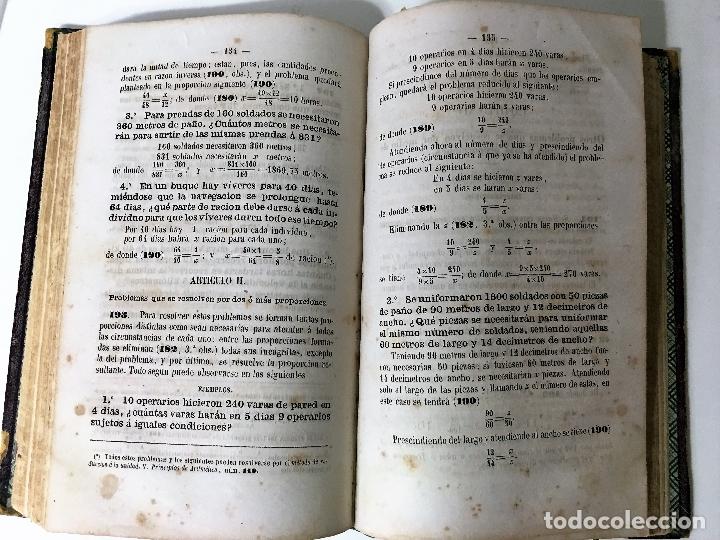 — 134 —
dara la mitad de tiempo; estan, pues, las cantidades proce-
dentes en razon inversa (190, obs.), y el problema quedará
planteado en la proporcion siguiente (190)
de donde (189) x = = 10 horas.
3.° Para prendas de 160 soldados se necesitaron
360 metros de paño. ¿Cuántos metros se necesita-
rán para surtir de las mismas prendas á 831?
160 soldados necesitaron 360 metros,
831 soldados necesitarán x metros;
de donde 160/831 = 360/x; x = 831×360/160 = 1869,75 metros.
4.° En un buque hay víveres para 40 dias, te-
miéndose que la navegacion se prolongue hasta
64 dias, ¿qué parte de racion debe darse á cada in-
dividuo para que los víveres duren todo ese tiempo?
Por 40 dias hay 1 racion para cada individuo,
por 64 dias habra x racion para cada uno;
de donde (190) 40/64 = x/1; y x = 40×1/64 = 5/8 de racion
ARTICULO II.
Problemas que se resuelven por dos ó más proporciones.
193. Para resolver éstos problemas se forman tantas pro-
porciones distintas como sean necesarias para atender á todas
las circunstancias de cada uno: entre las proporciones forma-
das se eliminan (182, 3.ª obs.) todas sus incógnitas, excepto
la del problema, y por último, se resuelve la proporcion re-
sultante. Todo segun puede observarse en los siguientes
EJEMPLOS.
1.° 10 operarios hicieron 240 varas de pared en
4 dias, ¿cuántas varas harán en 5 dias 9 operarios
sujetos á iguales condiciones?
(*) Todos estos problemas y los siguientes pueden resolverse por el método de re-
duccion á la unidad. V. Principios de Aritmética, núm. 119.
— 135 —
10 operarios en 4 dias hicieron 240 varas,
9 operarios en 5 dias harán x varas.
Si prescindimos del número de dias que los operarios em-
plean, quedará el problema reducido al siguiente:
10 operarios hicieron 240 varas,
9 operarios harán z varas;
de donde (189) 10/9 = 240/z
Atendiendo ahora al número de dias y prescindiendo del
de operarios (circunstancia á que ya se ha atendido) el proble-
ma se reduce al siguiente:
En 4 dias se hicieron z varas,
en 5 dias se harán x varas;
de donde (189) 4/5 = z/x
Eliminando la z (182, 3.ª obs.) entre las proporciones
10/9 = 240/z y 4/5 = z/x,
se tiene 4×10/5×9 = 240/x; de donde x = 9×5×240/4×10 = 270 varas.
3.° Se uniformaron 1800 soldados con 50 piezas
de paño de 90 metros de largo y 12 decímetros de
ancho. ¿Qué piezas se necesitarán para uniformar
el mismo número de soldados, teniendo aquellas
60 metros de largo y 14 decímetros de ancho?
Teniendo 90 metros de largo y 12 decímetros de ancho fue-
ron necesarias 50 piezas; si tuviesen 60 metros de largo y
14 decímetros de ancho, se necesitarán x piezas. Atendiendo
solo al largo de las piezas y llamando z el número de estas, en
este caso se tendrá (190)
90/60 = z/50
Prescindiendo del largo y atendiendo al ancho se tiene (190)
12/14 = x/z
todocoleccion